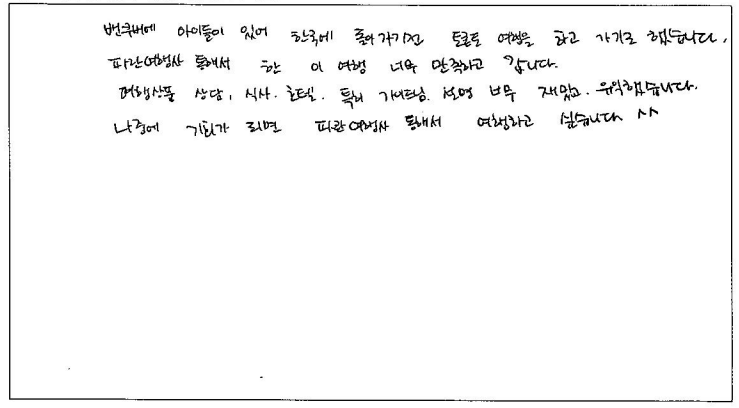 밴쿠버에 아이들이 있어 한국에 돌아가기전 토론토 여행을 하고 가기로 했습니다.
파란여행사 통해서 한 이 여행 너무 만족하고 갑니다.
여행상품 상담, 식사. 호텔. 특히 가이드님 설명 너무 재밌고. 유익했습니다.
나중에 기회가 되면 파란여행사 통해서 여행하고 싶습니다 ^^